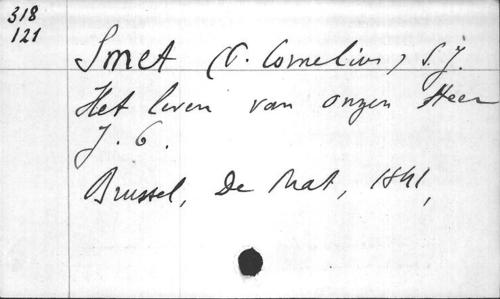 318
121
Smet (V. Cornelius) S.J.
Het leven van onzen Heer
J. C.
Brussel, De Mat, 1841,